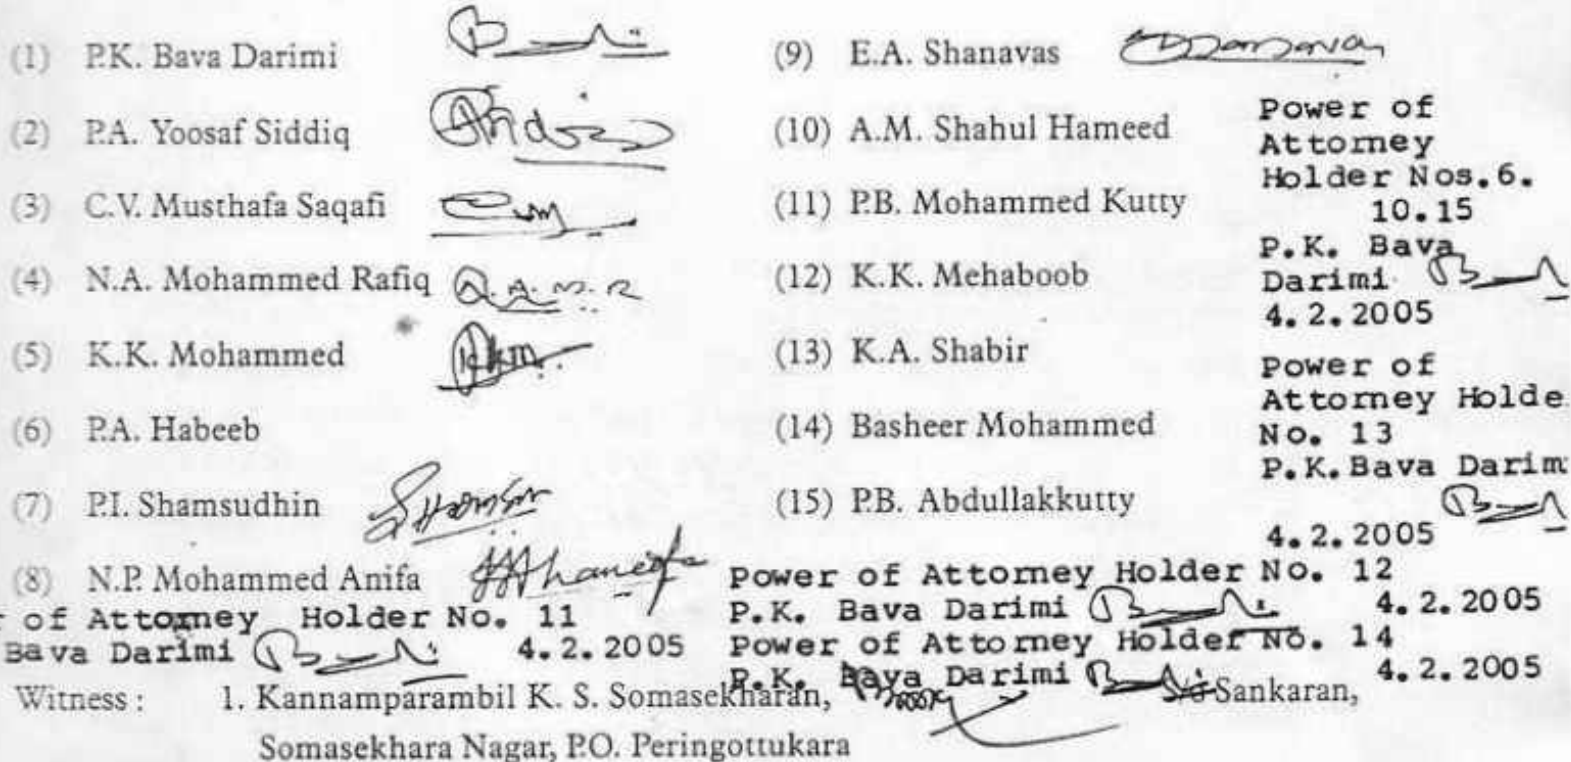 (1) P.K. Bava Darimi
(2) P.A. Yoosaf Siddiq
(3) C.V. Musthafa Saqafi
(4) N.A. Mohammed Rafiq N.A.M.R
(5) K.K. Mohammed
(6) P.A. Habeeb
(7) P.I. Shamsudhin
(8) N.P. Mohammed Anifa
(9) E.A. Shanavas
(10) A.M. Shahul Hameed
(11) P.B. Mohammed Kutty
(12) K.K. Mehaboob
(13) K.A. Shabir
(14) Basheer Mohammed
(15) P.B. Abdullakkutty
Power of
Attorney
Holder Nos.6.
10.15
P.K. Bava
Darimi
4.2.2005
Power of
Attorney Holde
No. 13
P.K.Bava Darim
4.2.2005
of Attorney Holder No. 11
Bava Darimi 4.2.2005
Power of Attorney Holder No. 12
P.K. Bava Darimi 4.2.2005
Power of Attorney Holder No. 14
P.K. Bava Darimi 4.2.2005
Witness : 1. Kannamparambil K. S. Somasekharan, S/o Sankaran,
Somasekhara Nagar, P.O. Peringottukara